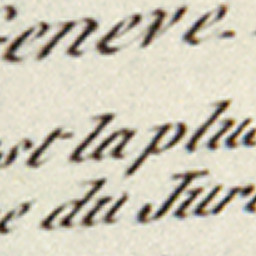 Geneve.
est la plu
e du Jura